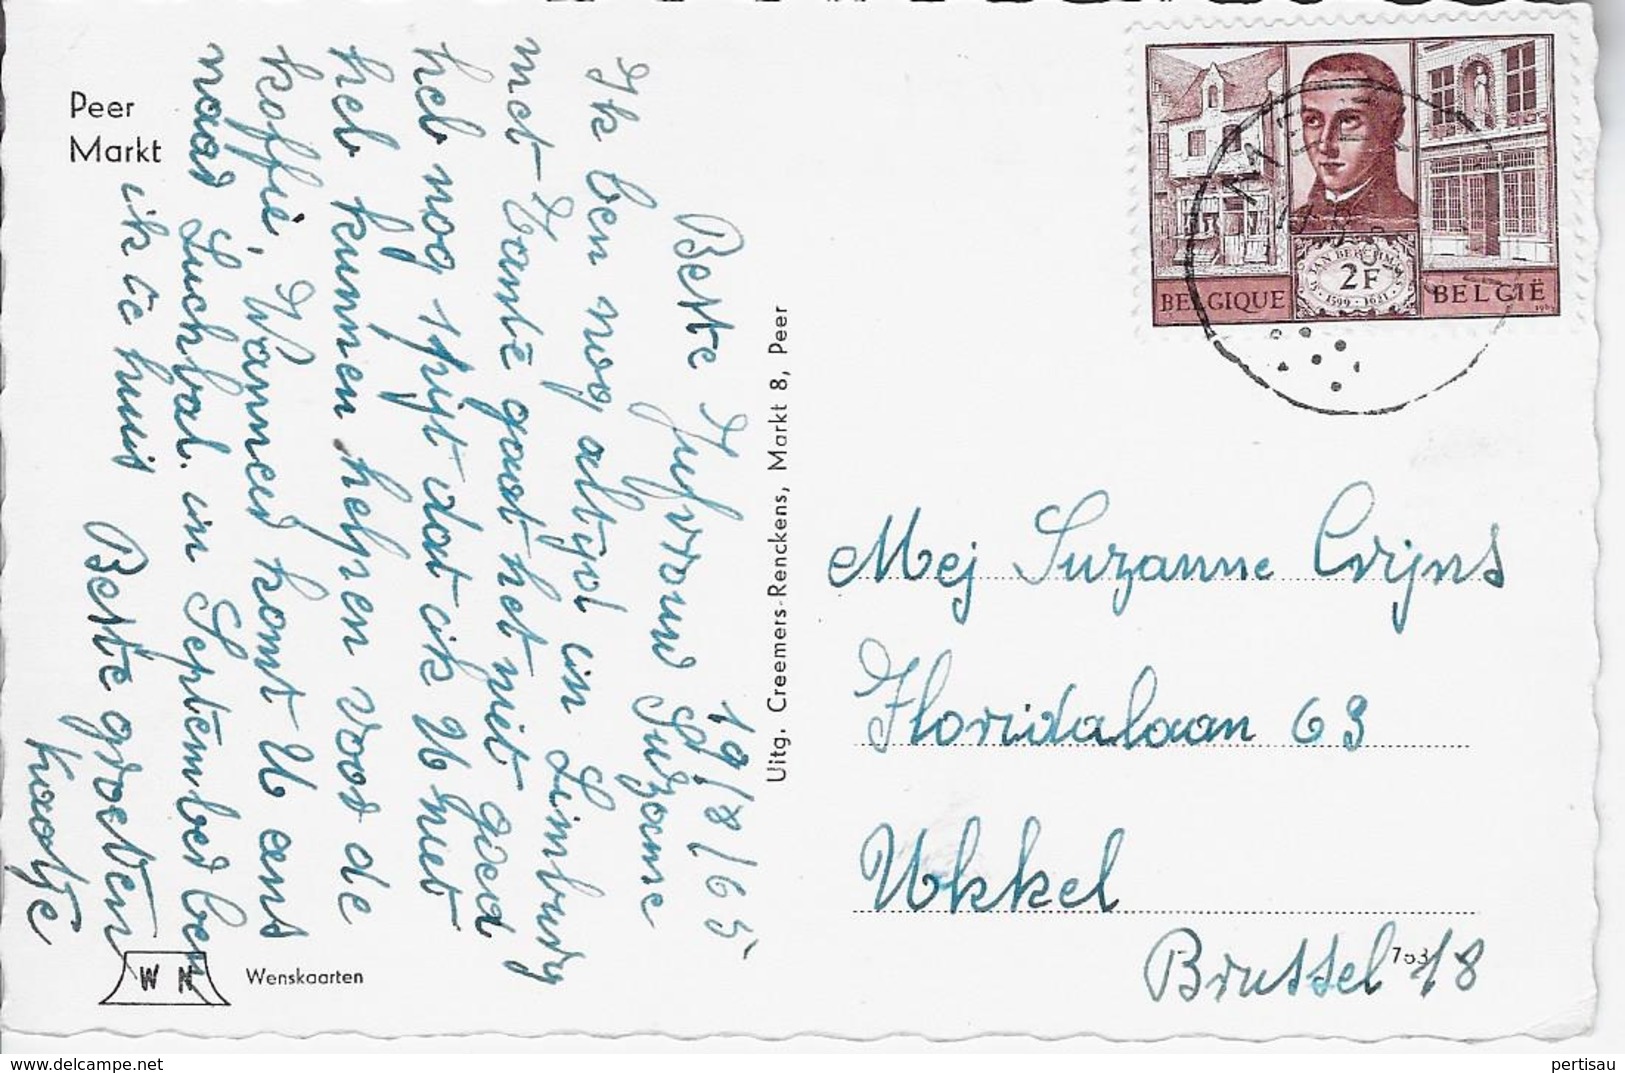 Peer
Markt
19/8/65
Beste Jufvrouw Suzanne
Ik ben nog altijd in Limburg
met Tante gaat het niet goed
heb nog spijt dat ik U niet
heb kunnen helpen voor de
koffie, Wanneer komt U eens
naar Luchbal. in September ben
ik te huis
Beste groeten
Uitg. Creemers-Renckens, Markt 8, Peer
W N
Wenskaarten
BELGIQUE
JAN BERCHMANS
1599 · 1621
2F
BELGIË
Mej Suzanne Crijns
Floridalaan 63
Ukkel
Brussel 18
pertisau